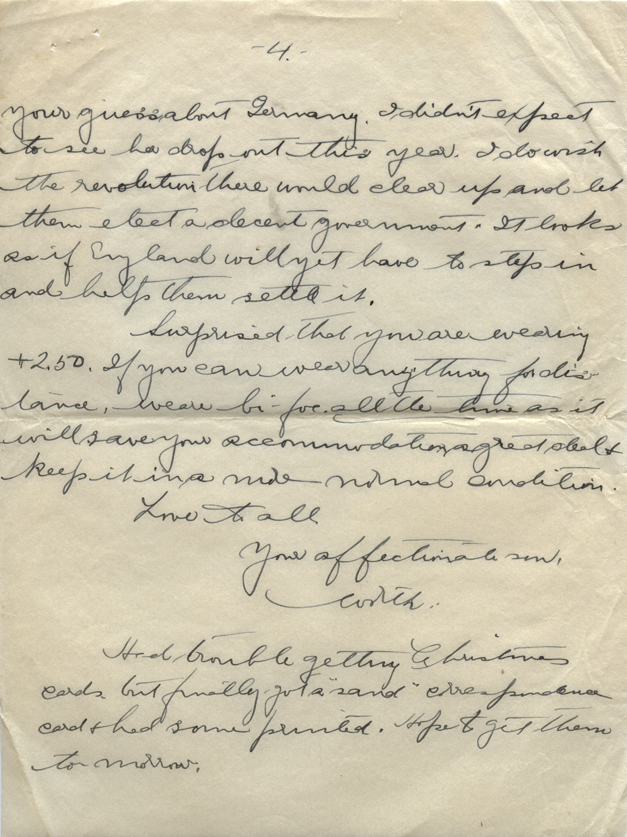 -4.-
your guess about Germany. I didn't expect
to see her drop out this year. I do wish
the revolution there would clear up and let
them elect a decent government. It looks
as if England will yet have to step in
and help them settle it.
Surprised that you are wearing
+2.50. If you can wear anything for dis-
tance, weare bi-foc. all the time as it
will save your accommodation a great deal &
keep it in a more normal condition.
Love to all
Your affectionate son,
Worth.
Had trouble getting Christmas
cards but finally got a "sand" correspondence
card & had some printed. Hope to get them
to-morrow.